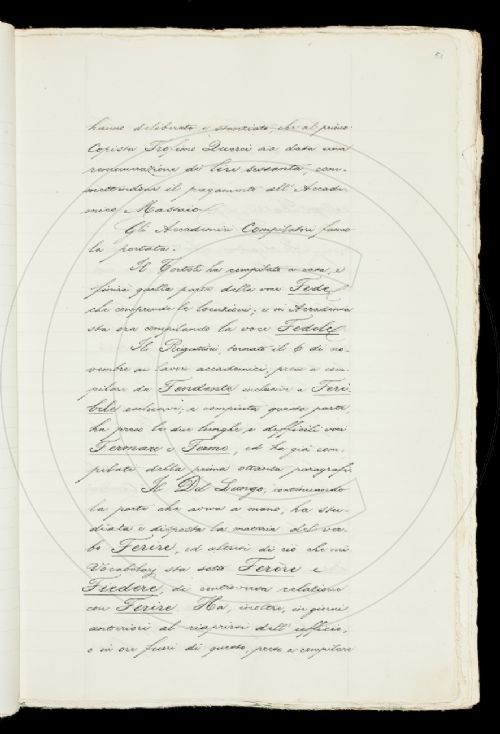 51
hanno deliberato e stanziato, che al primo
Copista Trofimo Querci sia data una
remunerazione di lire sessanta, com-
mettendone il pagamento all'Accade-
mico Massaio.
Gli Accademici Compilatori fanno
la portata.
Il Tortoli ha compilato a casa, e
finirà quella parte della voce Fede
che comprende le locuzioni; e in Accademia
sta ora compilando la voce Fedele
Il Rigutini, tornato il 6 di no-
vembre ai lavori accademici, prese a com-
pilare da Fendente inclusive a Feri-
bile exclusive, e compiuta questa parte,
ha preso le due lunghe e difficili voci
Fermare e Fermo, ed ha già com-
pilato della prima ottanta paragrafi.
Il Del Lungo, continuando
la parte che aveva a mano, ha stu-
diata e disposta la materia del ver-
bo Ferire, ed altresì di ciò che nei
Vocabolarj sta sotto Ferire e
Fiedere, di controversa relazione
con Ferire. Ha, inoltre, in giorni
anteriori al riaprirsi dell'ufficio,
o in ore fuori di questo, preso a compilare